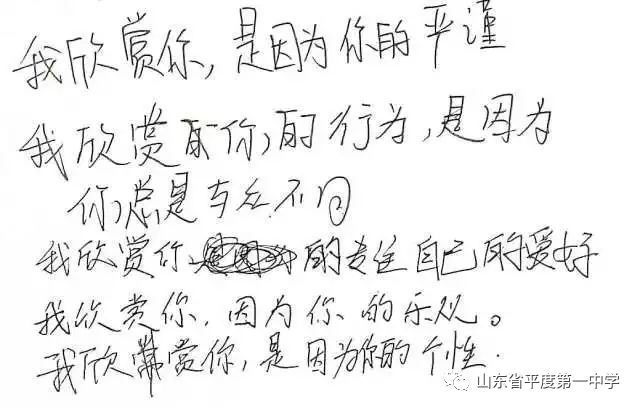 我欣赏你，是因为你的严谨
我欣赏你的行为，是因为
你总是与众不同
我欣赏你的专注自己的爱好
我欣赏你，因为你的乐观。
我欣赏你，是因为你的个性.
山东省平度第一中学